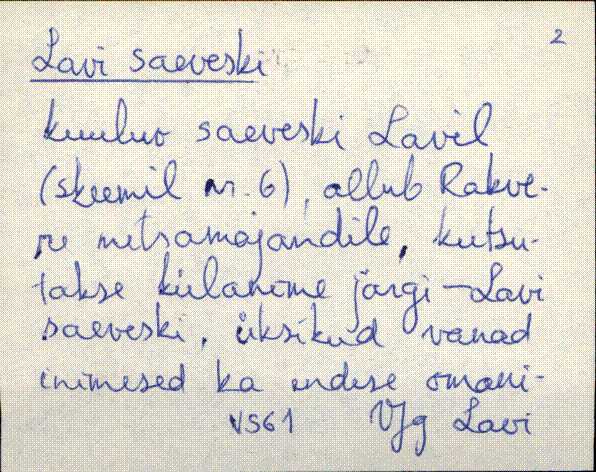 2
Lavi saeveski
kuuluv saeveski Lavil
(skeemil nr. 6), allub Rakve-
re metsamajandile, kutsu-
takse külanime järgi – Lavi
saeveski, üksikud vanad
inimesed ka endise omani-
VS61 VJg Lavi